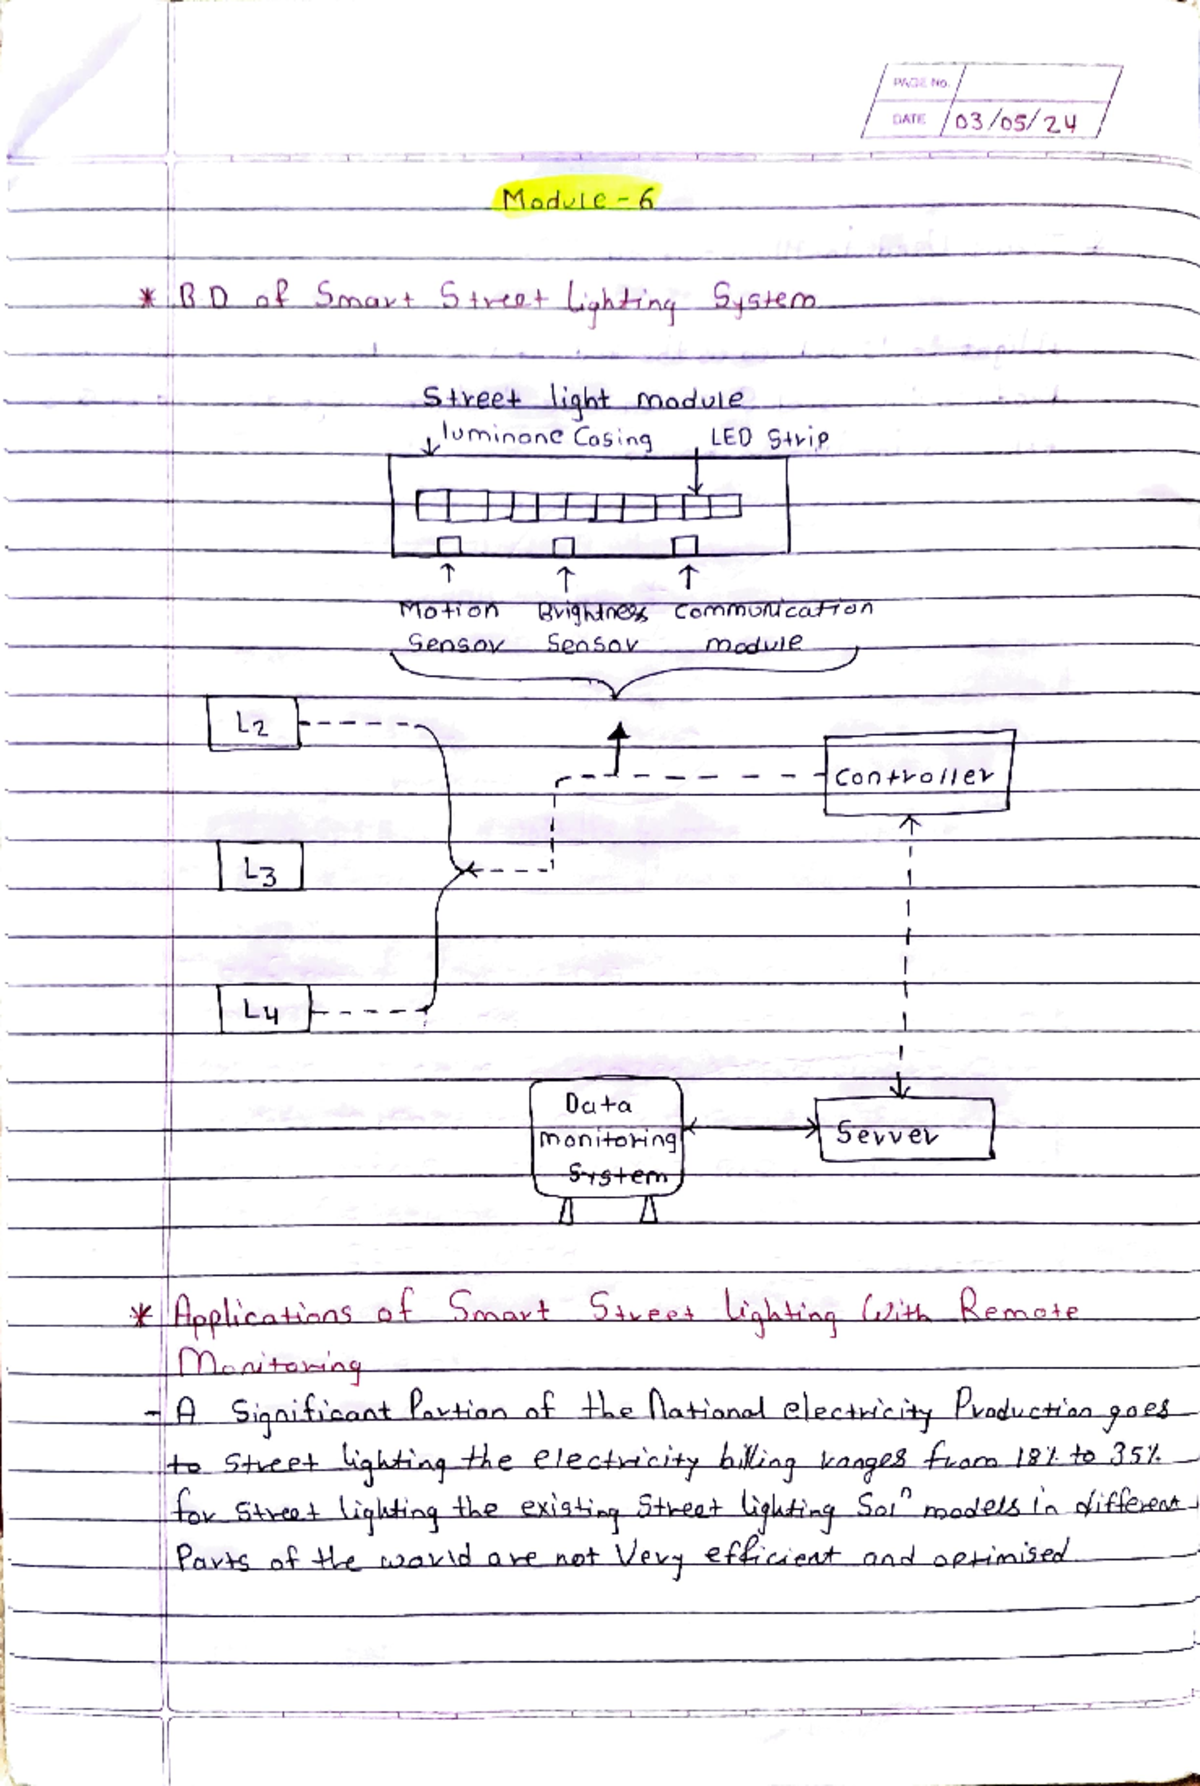 PAGE No.
DATE 03/05/24
Module-6
* B D of Smart Street lighting System
Street light module
luminone Casing LED Strip
Motion Brightness Communication
Sensor Sensor module
L2
Controller
L3
L4
Data
monitoring
System
Server
* Applications of Smart Street lighting With Remote
Monitoring
- A Significant Portion of the National electricity Production goes
to street lighting the electricity billing ranges from 18% to 35%
for street lighting the existing Street lighting Solⁿ models in different
Parts of the world are not Very efficient and optimised